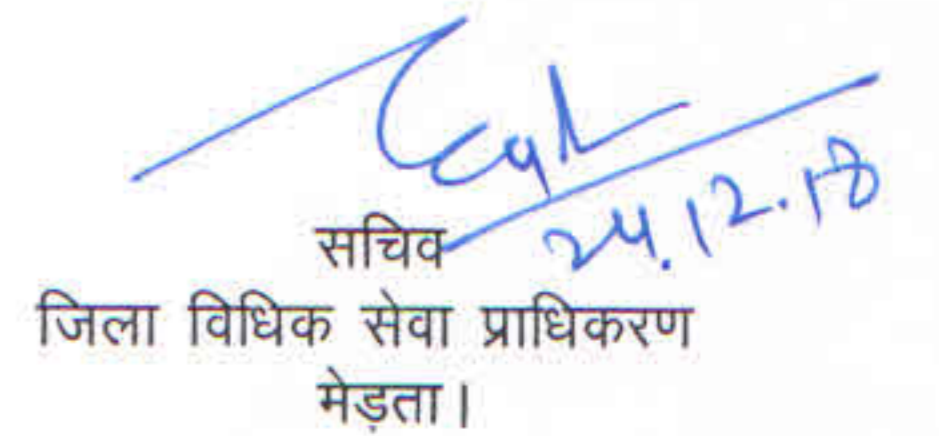 24.12.18
सचिव
जिला विधिक सेवा प्राधिकरण
मेड़ता।